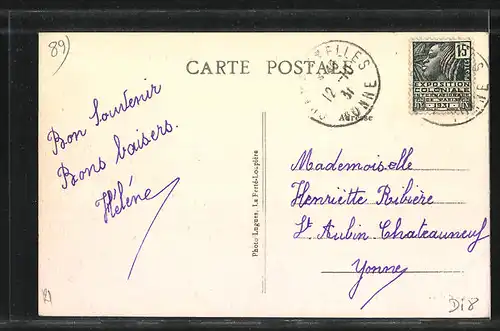 89)
CARTE POSTALE
ELLES
12-10
31
YONNE
15c
POSTES
EXPOSITION
COLONIALE
INTERNATIONALE
DE PARIS
1931
Adresse
Bon Souvenir
Bons baisers.
Hélène
Photo Lugues, La Ferté-Loupière
Mademoiselle
Henriette Ribière
St Aubin Chateauneuf
Yonne
D18